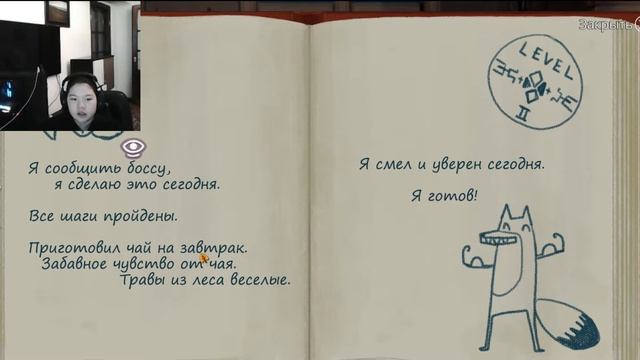 Закрыть
Я сообщить боссу,
я сделаю это сегодня.
Все шаги пройдены.
Приготовил чай на завтрак.
Забавное чувство от чая.
Травы из леса веселые.
LEVEL
II
Я смел и уверен сегодня.
Я готов!